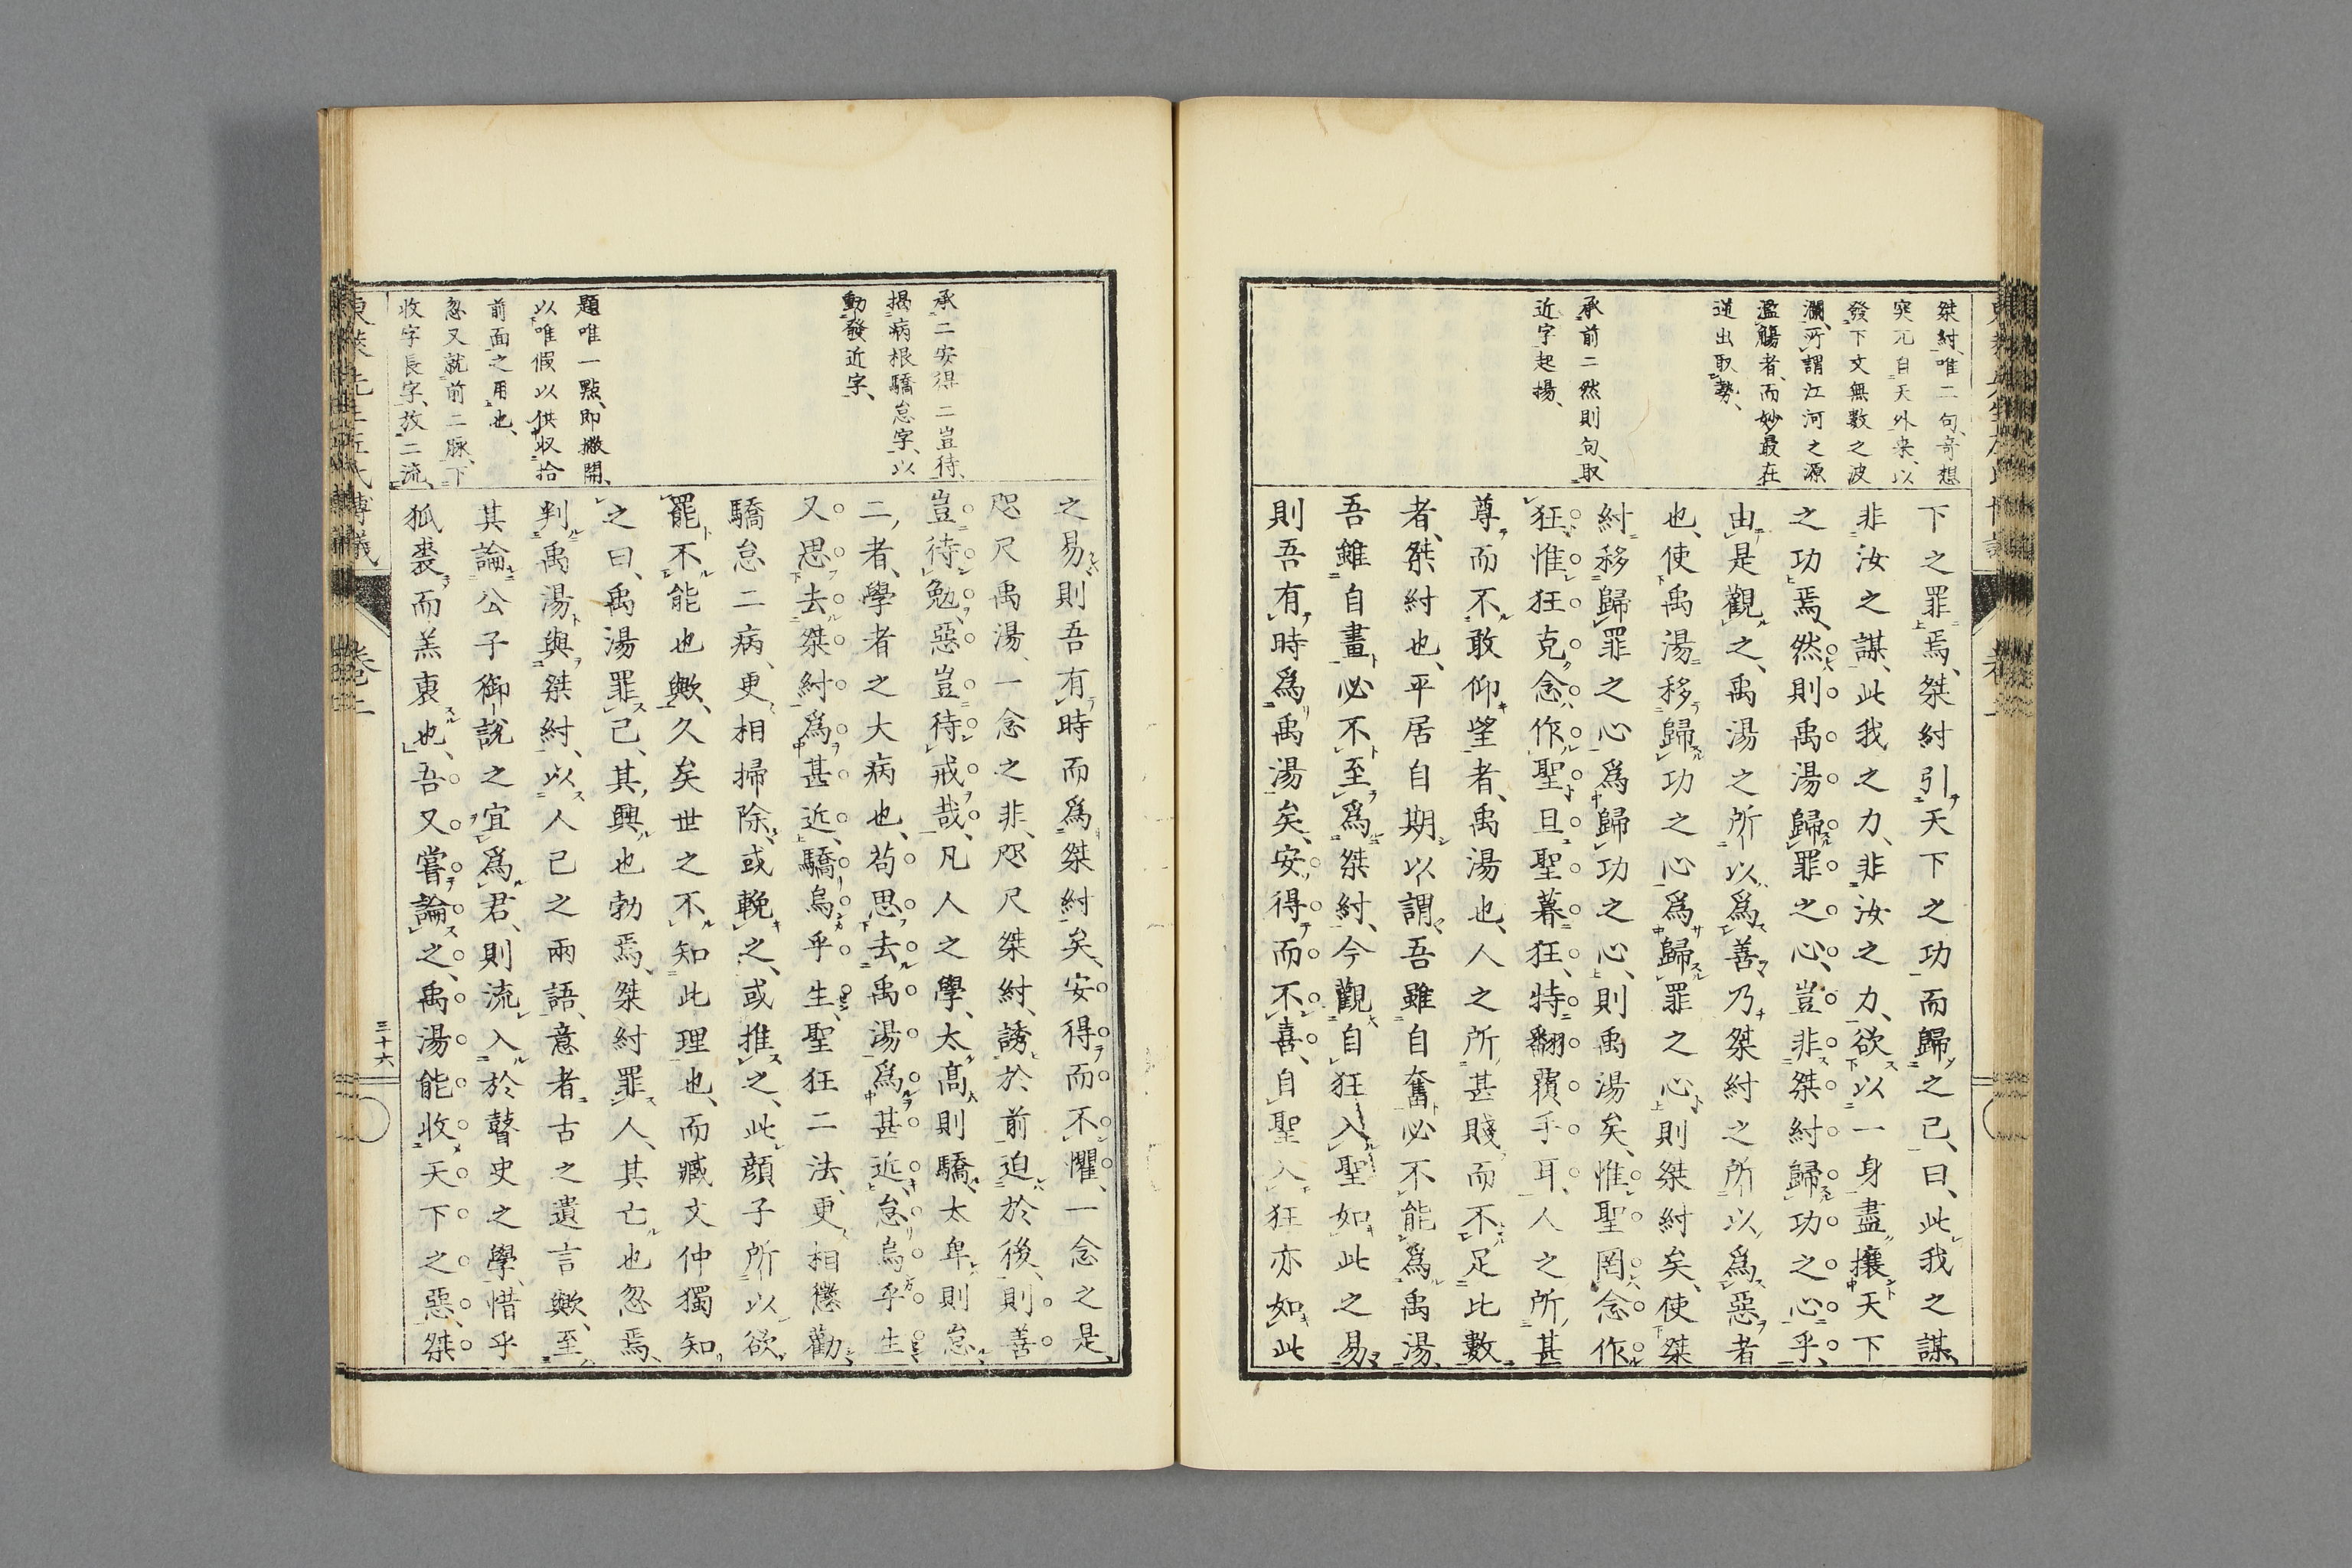 桀紂唯二句、奇想
突兀自天外来、以
發下文無數之波
瀾、所謂江河之源
濫觴者、而妙最在
逆出取勢、
承前二然則句、取
近字起揚、
下之罪焉、桀紂引天下之功而歸之己、曰、此我之謀、
非汝之謀、此我之力、非汝之力、欲以一身盡攘天下
之功焉、然則禹湯歸罪之心、豈非桀紂歸功之心乎、
由是觀之、禹湯之所以爲善乃桀紂之所以爲惡者
也、使禹湯移歸功之心爲歸罪之心、則桀紂矣、使桀
紂移歸罪之心爲歸功之心、則禹湯矣、惟聖罔念作
狂、惟狂克念作聖、旦聖暮狂、特翻覆乎耳、人之所甚
尊而不敢仰望者、禹湯也、人之所甚賤而不足比數
者、桀紂也、平居自期以謂吾雖自奮必不能爲禹湯、
吾雖自畫必不至爲桀紂、今觀自狂入聖如此之易、
則吾有時爲禹湯矣、安得而不喜、自聖入狂亦如此
承二安得二豈待、
揭病根驕怠字、以
動發近字、
題唯一點、即撇開、
以唯假以供収拾
前面之用也、
忽又就前二脈、下
收字長字、放二流、
之易則吾有時而爲桀紂矣、安得而不懼、一念之是、
咫尺禹湯、一念之非、咫尺桀紂、誘於前迫於後、則善
豈待勉、惡豈待戒哉、凡人之學、太高則驕、太卑則怠、
二者、學者之大病也、苟思去禹湯爲甚近、怠烏乎生
又思去桀紂爲甚近、驕烏乎生、聖狂二法、更相懲勸、
驕怠二病、更相掃除、或輓之、或推之、此顔子所以欲
罷不能也歟、久矣世之不知此理也、而臧文仲獨知
之曰、禹湯罪己、其興也勃焉、桀紂罪人、其亡也忽焉、
判禹湯與桀紂、以人己之兩語、意者古之遺言歟、至
其論公子御說之宜爲君、則流入於瞽史之學、惜乎
狐裘而羔裏也、吾又嘗論之、禹湯能收天下之惡、桀
東萊先生左氏博議
卷二
三十六